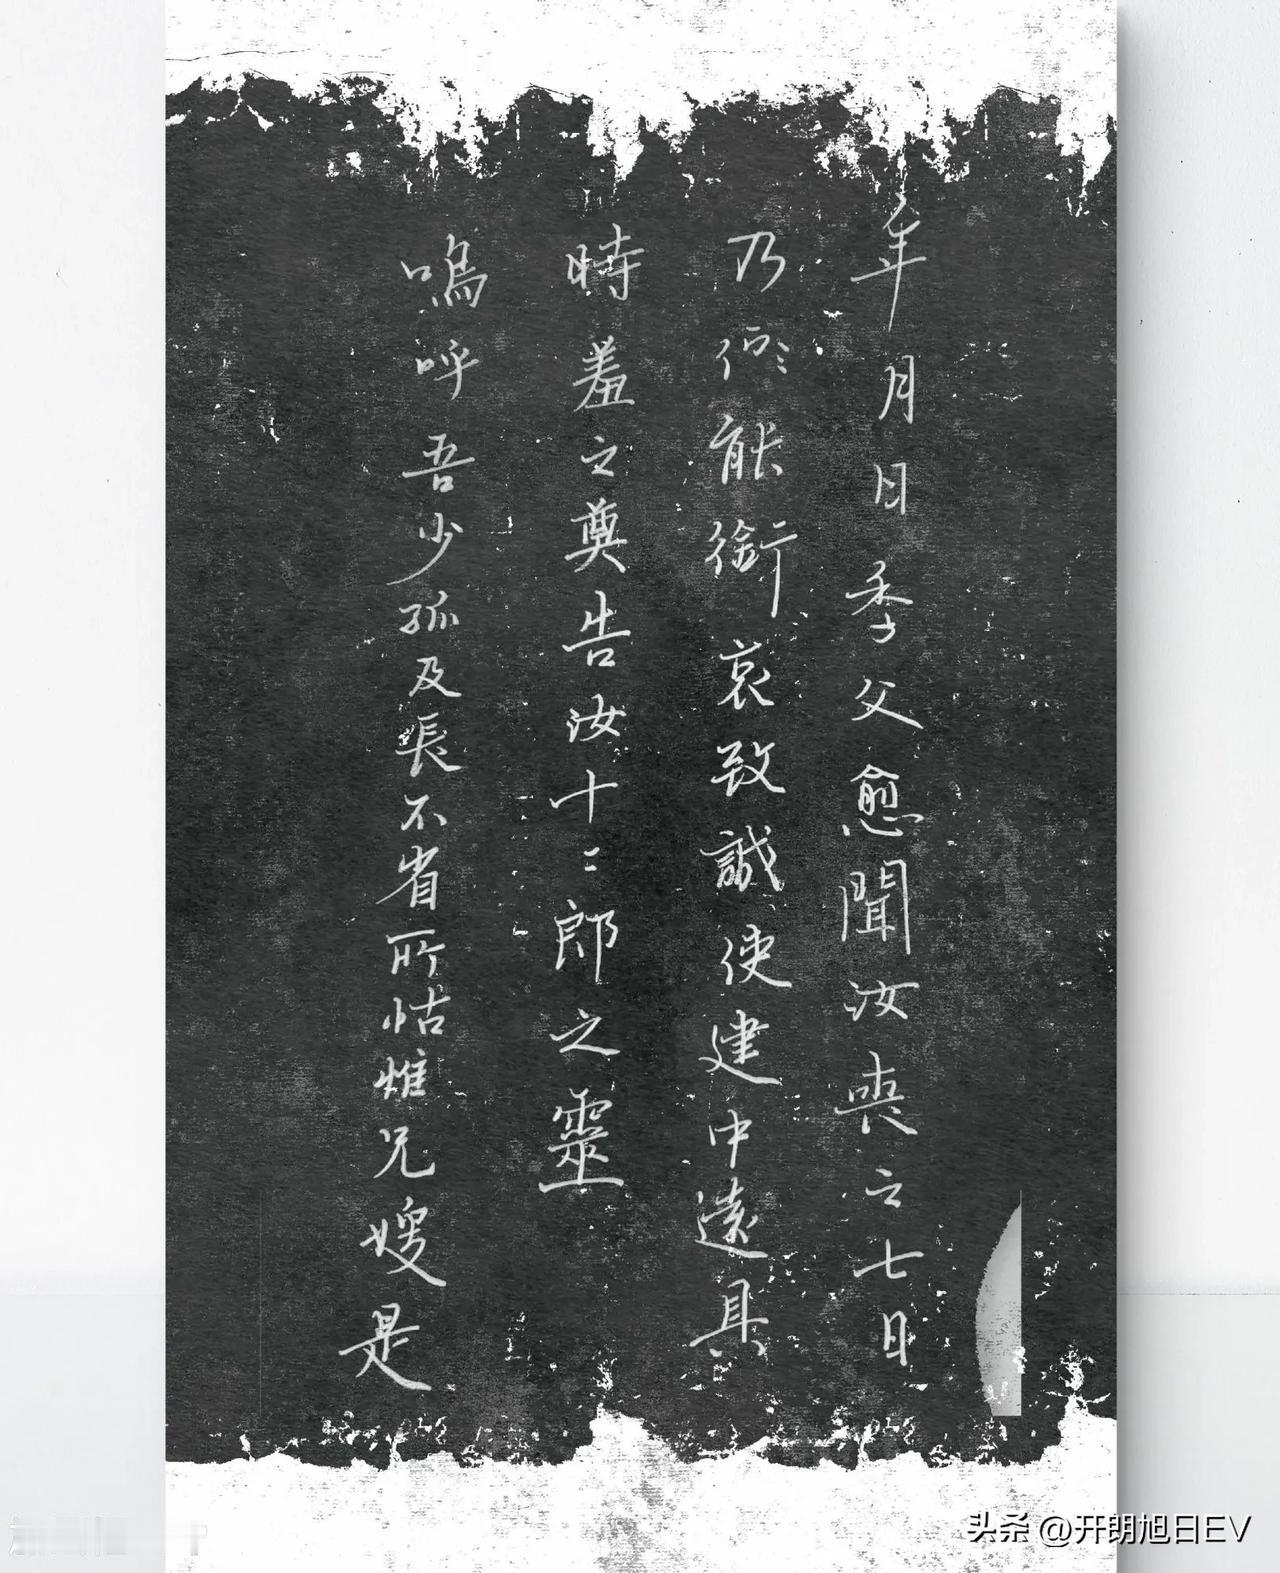 年月日季父愈聞汝喪之七日
乃能銜哀致誠使建中遠具
時羞之奠告汝十二郎之靈
嗚呼吾少孤及長不省所怙惟兄嫂是
头条 @开朗旭日EV